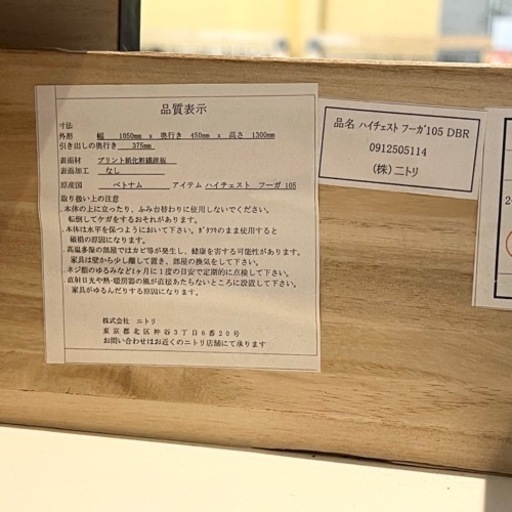 品質表示
寸法
外形 幅 1050mm x 奥行き 450mm x 高さ 1300mm
引き出しの奥行き 375mm
表面材 プリント紙化粧繊維板
表面加工 なし
原産国 ベトナム アイテム ハイチェスト フーガ 105
取り扱い上の注意
・本体の上に立ったり、ふみ台替わりに使用しないでください。
転倒してケガをするおそれがあります。
・本体は水平を保つようにおいて下さい。ガタツキのまま使用すると
破損の原因になります。
・高温多湿の部屋ではカビ等が発生し、健康を害する可能性があります。
家具は壁から少し離して置き、部屋の換気をして下さい。
・ネジ類のゆるみなど1ヶ月に1度の目安で定期的に点検して下さい。
・直射日光や熱・暖房器の風が直接あたらないところに設置して下さい。
家具がゆるんだりする原因になります。
株式会社 ニトリ
東京都北区神谷3丁目6番20号
お問い合わせはお近くのニトリ店舗にて承ります
品名 ハイチェスト フーガ105 DBR
0912505114
(株)ニトリ
2